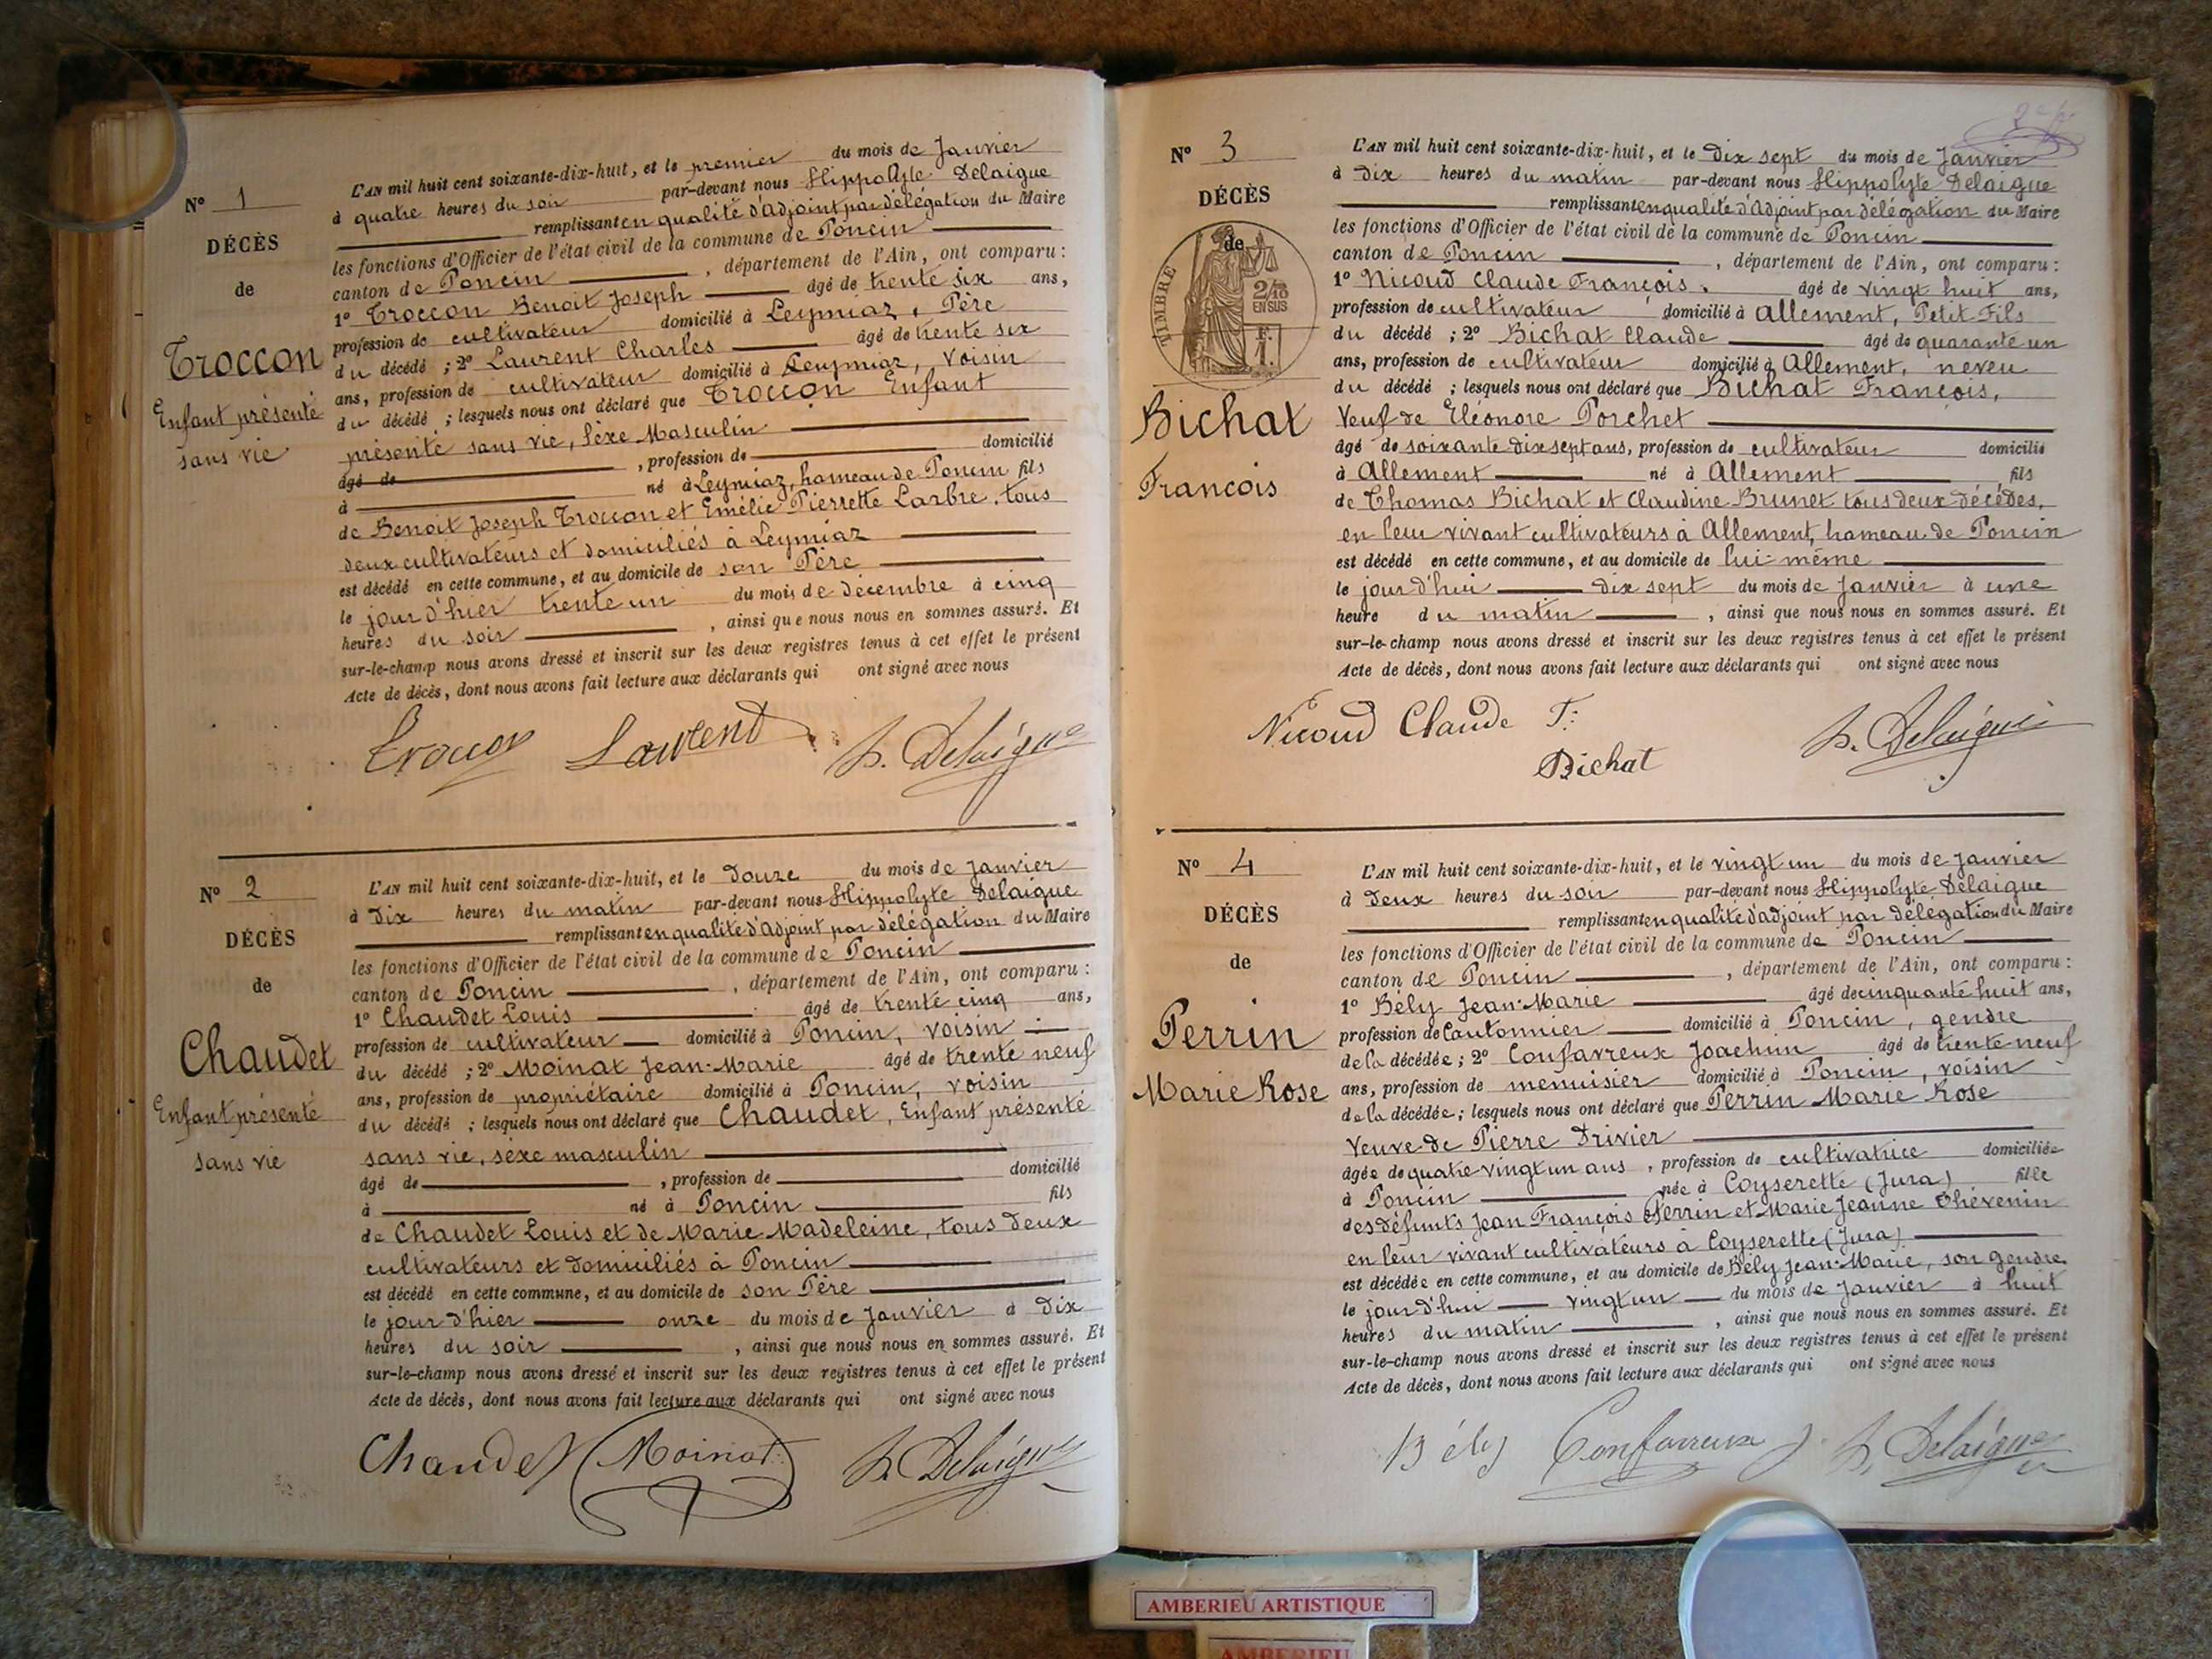 N° 1
DÉCÈS
de
Troccon
Enfant présenté
sans vie
L'AN mil huit cent soixante-dix-huit, et le premier du mois de Janvier
à quatre heures du soir par-devant nous Hippolyte Delaigue
remplissant en qualité d'Adjoint par délégation du Maire
les fonctions d'Officier de l'état civil de la commune de Poncin
canton de Poncin, département de l'Ain, ont comparu :
1° Troccon Benoit Joseph âgé de trente six ans,
profession de cultivateur domicilié à Leymiaz, Père
du décédé ; 2° Laurent Charles âgé de trente six
ans, profession de cultivateur domicilié à Leymiaz, Voisin
du décédé ; lesquels nous ont déclaré que Troccon Enfant
présenté sans vie, Sèxe Masculin
âgé de , profession de domicilié
à né à Leymiaz, hameau de Poncin fils
de Benoit Joseph Troccon et Emélie Pierrette Larbre, tous
deux cultivateurs et domiciliés à Leymiaz
est décédé en cette commune, et au domicile de son Père
le jour d'hier trente un du mois de décembre à cinq
heures du soir , ainsi que nous nous en sommes assuré. Et
sur-le-champ nous avons dressé et inscrit sur les deux registres tenus à cet effet le présent
Acte de décès, dont nous avons fait lecture aux déclarants qui ont signé avec nous
Troccon Laurent h. Delaigue
N° 2
DÉCÈS
de
Chaudet
Enfant présenté
sans vie
L'AN mil huit cent soixante-dix-huit, et le douze du mois de Janvier
à dix heures du matin par-devant nous Hippolyte Delaigue
remplissant en qualité d'Adjoint par délégation du Maire
les fonctions d'Officier de l'état civil de la commune de Poncin
canton de Poncin , département de l'Ain, ont comparu :
1° Chaudet Louis âgé de trente cinq ans,
profession de cultivateur domicilié à Poncin, voisin
du décédé ; 2° Moinat Jean-Marie âgé de trente neuf
ans, profession de propriétaire domicilié à Poncin, voisin
du décédé ; lesquels nous ont déclaré que Chaudet, Enfant présenté
sans vie, sèxe masculin
âgé de , profession de domicilié
à né à Poncin fils
de Chaudet Louis et de Marie Madeleine, tous deux
cultivateurs et domiciliés à Poncin
est décédé en cette commune, et au domicile de son Père
le jour d'hier onze du mois de Janvier à dix
heures du soir , ainsi que nous nous en sommes assuré. Et
sur-le-champ nous avons dressé et inscrit sur les deux registres tenus à cet effet le présent
Acte de décès, dont nous avons fait lecture aux déclarants qui ont signé avec nous
Chaudet Moinat h. Delaigue
N° 3
DÉCÈS
de
TIMBRE
2/10
EN SUS
F.
1.
Bichat
François
L'AN mil huit cent soixante-dix-huit, et le dix sept du mois de Janvier
à dix heures du matin par-devant nous Hippolyte Delaigue
remplissant en qualité d'Adjoint par délégation du Maire
les fonctions d'Officier de l'état civil de la commune de Poncin
canton de Poncin , département de l'Ain, ont comparu :
1° Nicoud Claude François. âgé de vingt huit ans,
profession de cultivateur domicilié à Allement, Petit-Fils
du décédé ; 2° Bichat Claude âgé de quarante un
ans, profession de cultivateur domicilié à Allement, neveu
du décédé ; lesquels nous ont déclaré que Bichat François,
Veuf de Eléonore Porchet
âgé de soixante dix sept ans, profession de cultivateur domicilié
à Allement né à Allement fils
de Thomas Bichat et Claudine Brunet tous deux décédés,
en leur vivant cultivateurs à Allement, hameau de Poncin
est décédé en cette commune, et au domicile de lui-même
le jour d'hui dix sept du mois de Janvier à une
heure du matin , ainsi que nous nous en sommes assuré. Et
sur-le-champ nous avons dressé et inscrit sur les deux registres tenus à cet effet le présent
Acte de décès, dont nous avons fait lecture aux déclarants qui ont signé avec nous
Nicoud Claude F: h. Delaigue
Bichat
N° 4
DÉCÈS
de
Perrin
Marie Rose
L'AN mil huit cent soixante-dix-huit, et le vingt un du mois de Janvier
à deux heures du soir par-devant nous Hippolyte Delaigue
remplissant en qualité d'adjoint par délégation du Maire
les fonctions d'Officier de l'état civil de la commune de Poncin
canton de Poncin , département de l'Ain, ont comparu :
1° Bély Jean-Marie âgé de cinquante huit ans,
profession de Cantonnier domicilié à Poncin, gendre
de la décédée ; 2° Confavreux Joachim âgé de trente neuf
ans, profession de menuisier domicilié à Poncin, voisin
de la décédée ; lesquels nous ont déclaré que Perrin Marie Rose
Veuve de Pierre Drivier
âgée de quatre vingt un ans , profession de cultivatrice domiciliée
à Poncin née à Coyserette (Jura) fille
des défunts Jean François Perrin et Marie Jeanne Thévenin
en leur vivant cultivateurs à Coyserette (Jura)
est décédée en cette commune, et au domicile de Bély Jean-Marie, son gendre
le jour d'hui vingt un du mois de Janvier à huit
heures du matin , ainsi que nous nous en sommes assuré. Et
sur-le-champ nous avons dressé et inscrit sur les deux registres tenus à cet effet le présent
Acte de décès, dont nous avons fait lecture aux déclarants qui ont signé avec nous
Bély Confavreux J. h. Delaigue
AMBERIEU ARTISTIQUE
AMBERIEU